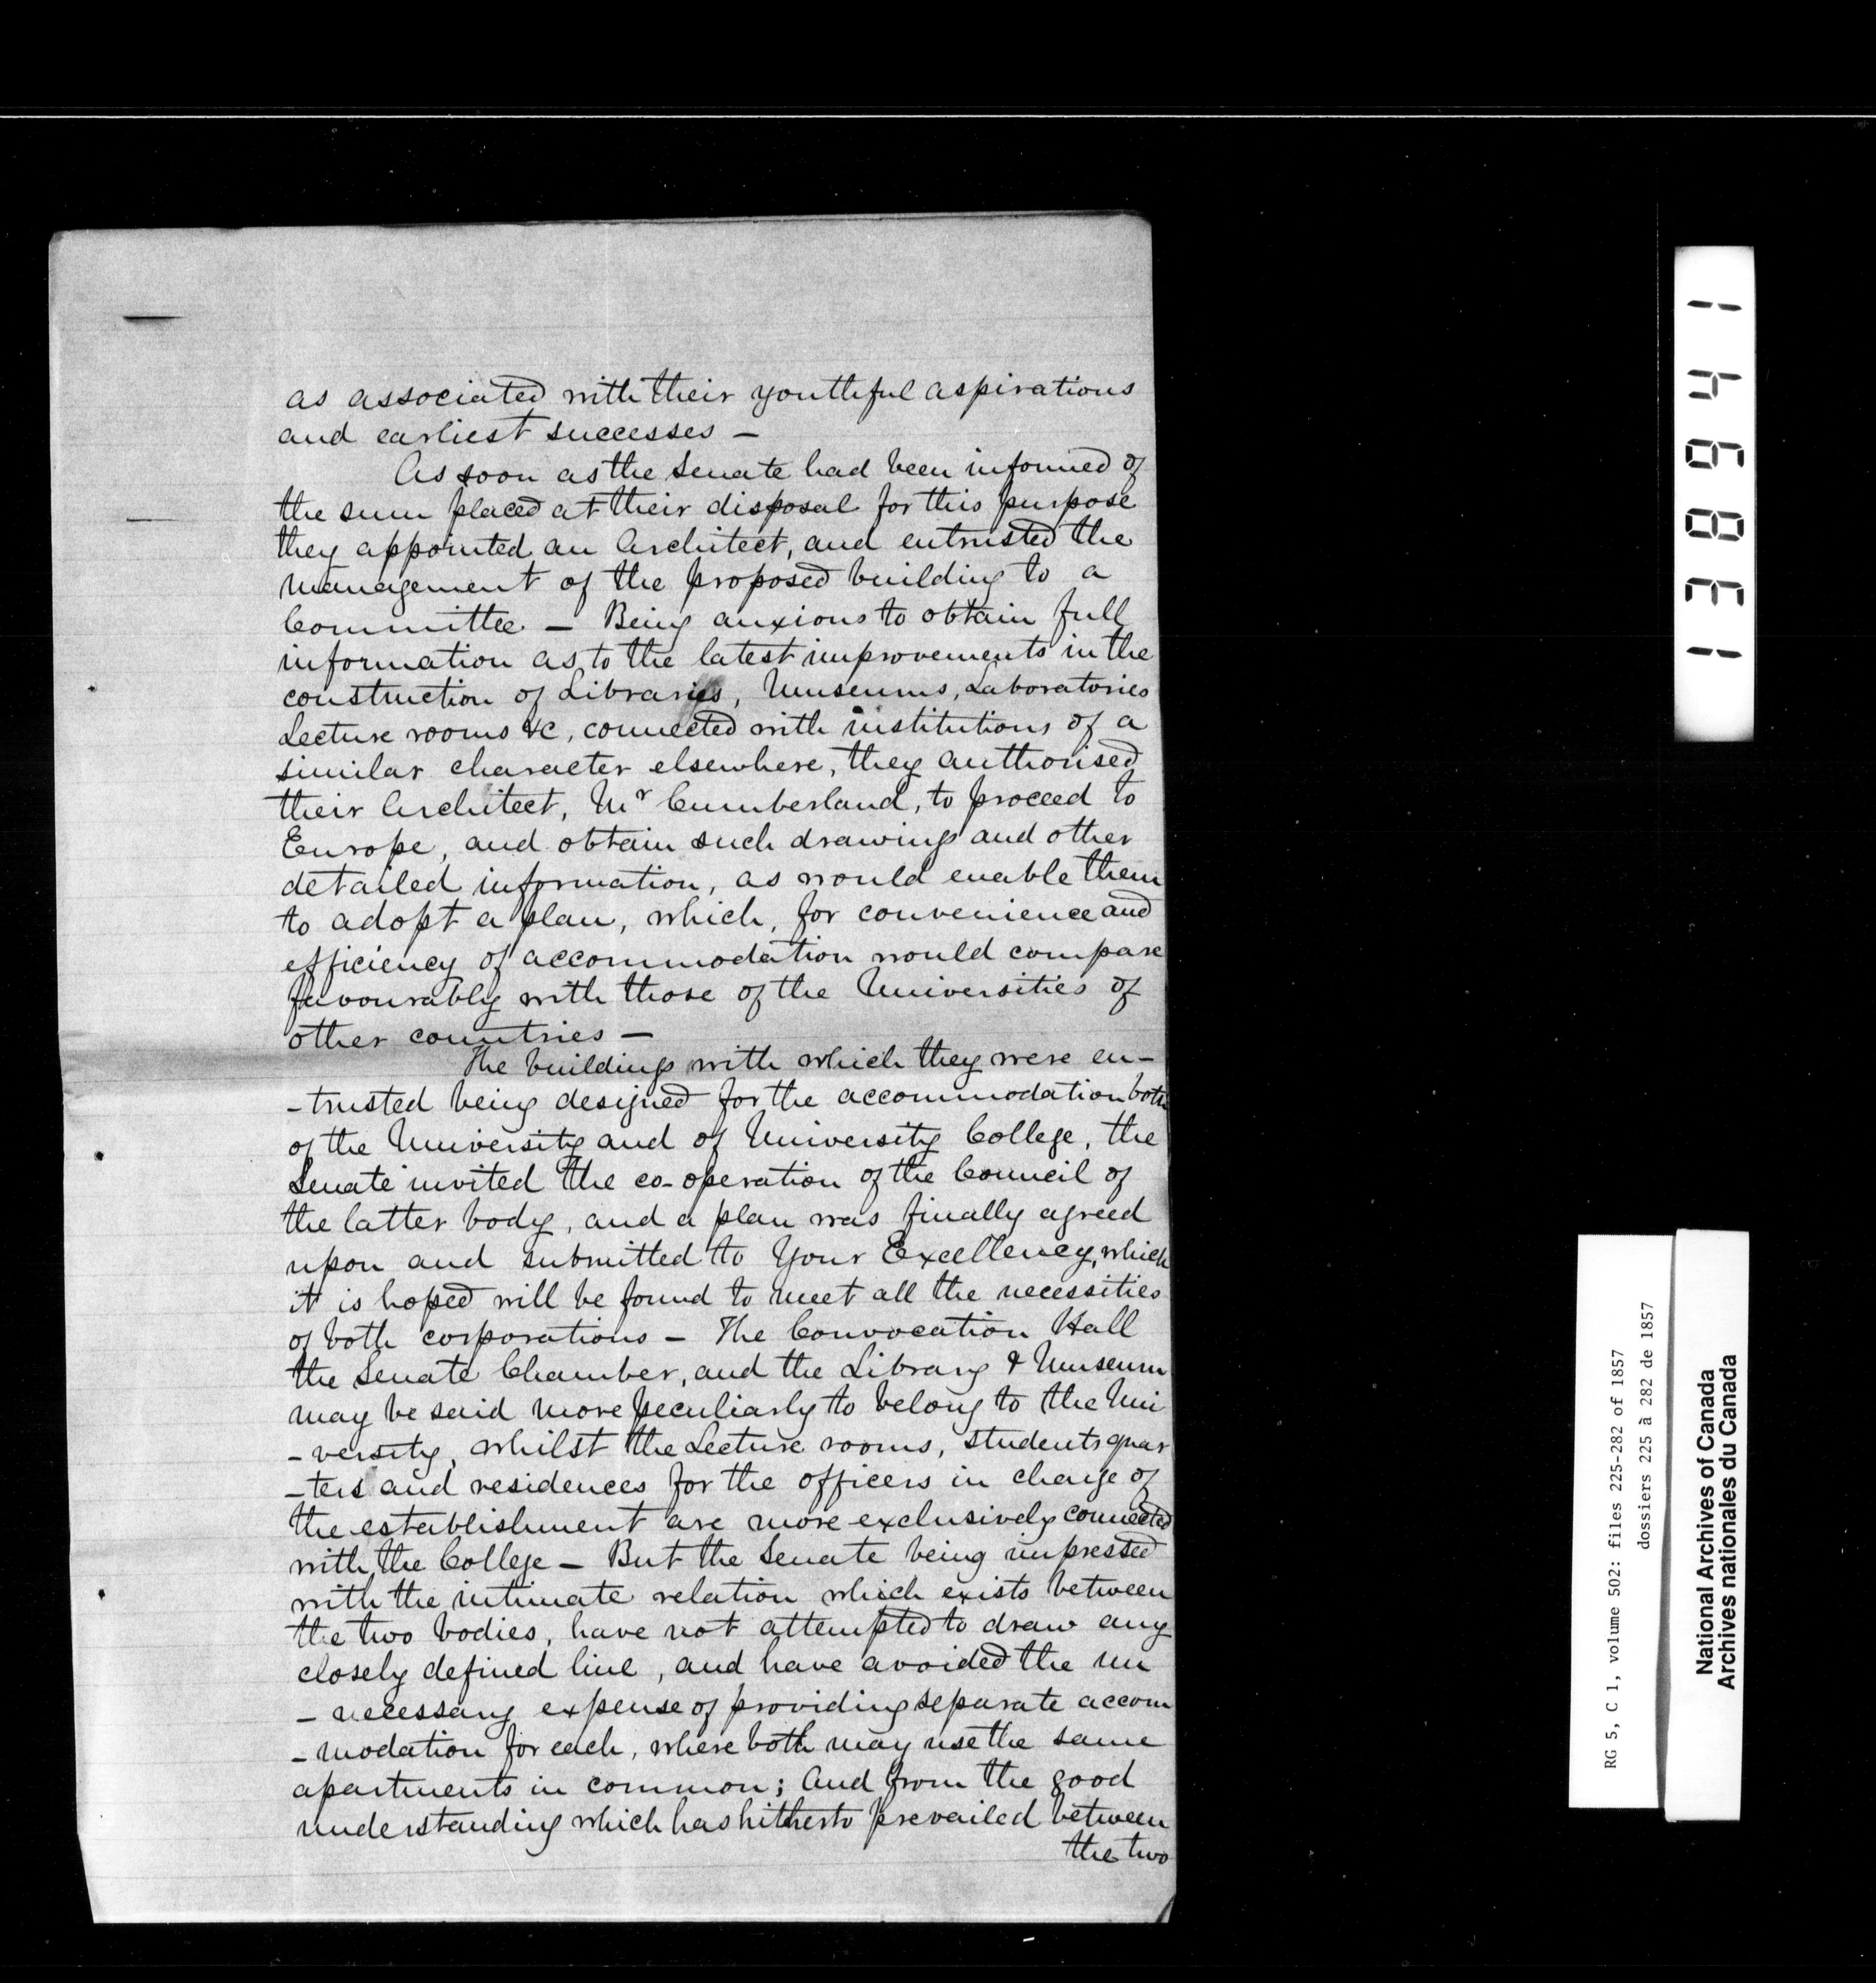 as associated with their youthful aspirations
and earliest successes —
As soon as the Senate had been informed of
the sum placed at their disposal for this purpose
they appointed an Architect, and entrusted the
management of the proposed building to a
Committee — Being anxious to obtain full
information as to the latest improvements in the
construction of Libraries, Museums, Laboratories
Lecture rooms &c, connected with institutions of a
similar character elsewhere, they authorised
their Architect, Mr Cumberland, to proceed to
Europe, and obtain such drawings and other
detailed information, as would enable them
to adopt a plan, which, for convenience and
efficiency of accommodation would compare
favourably with those of the Universities of
other countries —
The buildings with which they were en-
-trusted being designed for the accommodation both
of the University and of University College, the
Senate invited the co-operation of the Council of
the latter body, and a plan was finally agreed
upon and submitted to Your Excellency, which
it is hoped will be found to meet all the necessities
of both corporations — The Convocation Hall
the Senate Chamber, and the Library & Museum
may be said more peculiarly to belong to the Uni
-versity, whilst the Lecture rooms, students quar
-ters and residences for the officers in charge of
the establishment are more exclusively connected
with the College — But the Senate being impressed
with the intimate relation which exists between
the two bodies, have not attempted to draw any
closely defined line, and have avoided the un
-necessary expense of providing separate accom
-modation for each, where both may use the same
apartments in common; and from the good
understanding which has hitherto prevailed between
the two
138941
RG 5, C 1, volume 502: files 225-282 of 1857
dossiers 225 à 282 de 1857
National Archives of Canada
Archives nationales du Canada